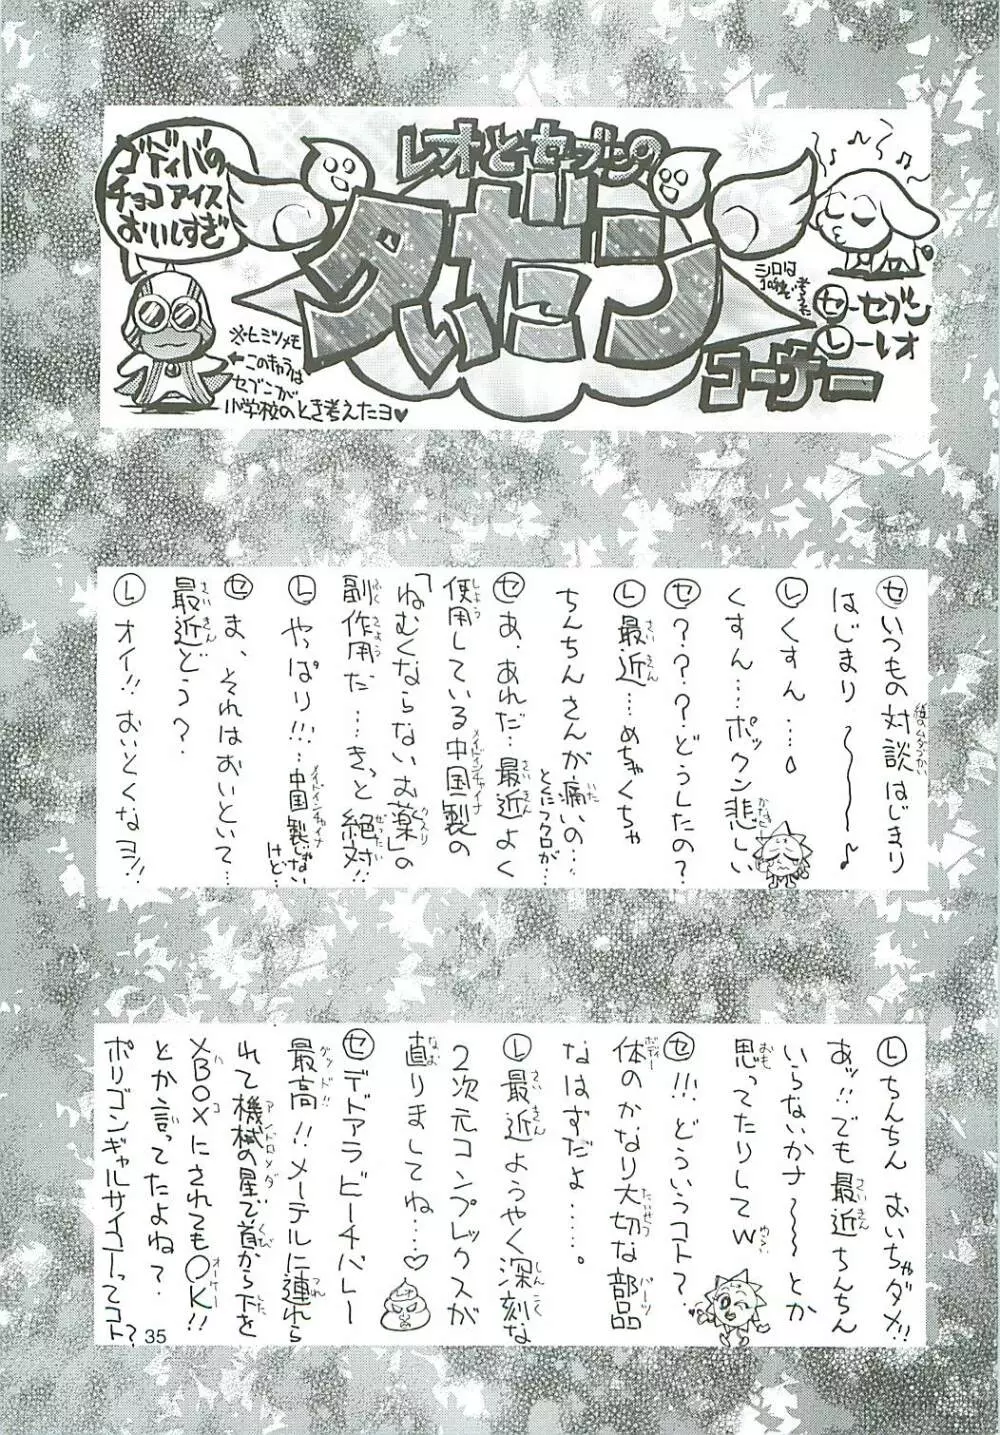 ゴディバの
チョコアイス
おいしすぎ
レオとセブンの
タ"ベ"ン
コーナー
シロは
セーセブン
レーレオ
※ヒミツメモ
←このキャラは
セブンが
小学校のとき考えたヨ♥
セ いつもの対談はじまり
はじまり〜〜〜♪
レ くすん…。
くすん…ポックン悲しい
セ ????どうしたの?
レ 最近…めちゃくちゃ
ちんちんさんが痛いの…
とくにフクロが…
セ あ、あれだ…最近よく
使用している中国製の
「ねむくならないお薬」の
副作用だ…きっと絶対!!
レ やっぱり!!!…中国製じゃない
けど…
セ ま、それはおいといて…
最近どう?
レ オイ!!おいとくなヨ!!
レ ちんちんおいちゃダメ!!
あッ!!でも最近ちんちん
いらないかナ〜〜〜とか
思ってたりしてw
セ !!!どういうコト?
体のかなり大切な部品
なはずだよ……。
レ 最近ようやく深刻な
2次元コンプレックスが
直りましてね…♡
セ デドアラビーチバレー
最高!!メーテルに連れら
れて機械の星で首から下を
XBOXにされても○K!!
とか言ってたよね?
ポリゴンギャルサイコーってコト?
35